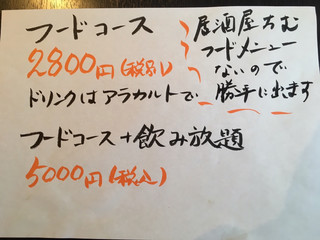 フードコース
2800円(税別)
ドリンクはアラカルトで
居酒屋ちむ
フードメニュー
ないので
勝手に出ます
フードコース+飲み放題
5000円(税込)